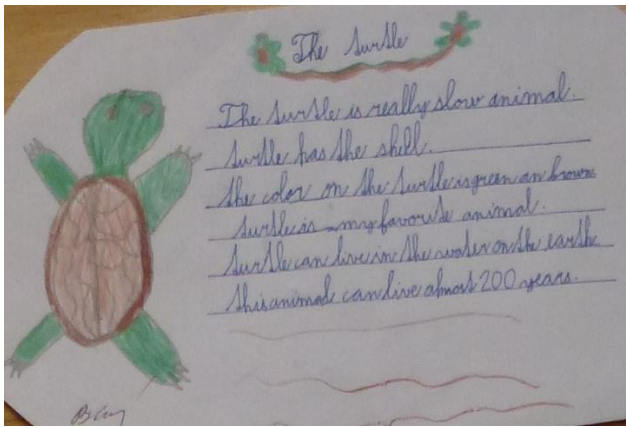 The turtle
The turtle is really slow animal.
turtle has the shell.
the color on the turtle is green an brown
turtle is my favorite animal.
turtle can live in the water on the earth
this animal can live almost 200 years.